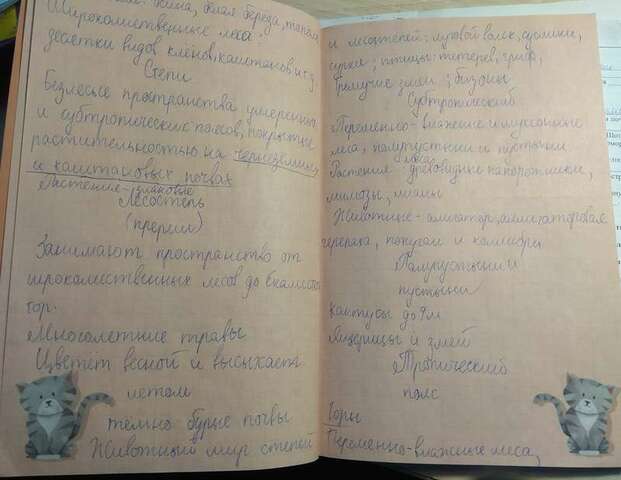 сина, белая береда, тополь
Широколиственные леса
десятки видов клёнов, каштанов и т д
Степи
Безлесье пространства умеренных
и субтропических поясов, покрытые
растительностью на черноземных
и каштановых почвах
Растение - злаковые
Лесостепь
(прерии)
Занимают пространство от
широколиственных лесов до Скалистых
гор.
Многолетние травы
Цветёт весной и высыхает
летом
темно бурые почвы
Животный мир степей
и лесостепей: луговой волк, суслики,
сурки; птицы: тетерев, гриф,
Гремучие змеи; бизоны
Субтропический
Переменно-влажные и муссонные
леса, полупустыни и пустыни
леса
Растения: древовидные папоротники,
мимозы, лианы
Животные - алигатор, аллигаторовая
черепаха, попугаи и колибри
Полупустыни и
пустыни
Кактусы до 9м
Ящерицы и змеи
Тропический
пояс
Горы
Переменно-влажные леса,